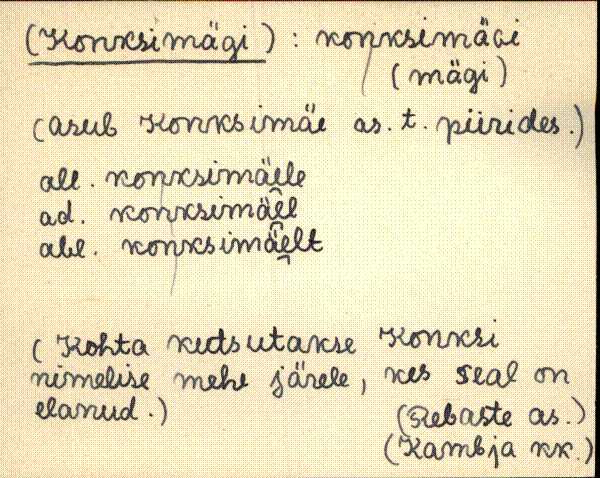 (Konksimägi) : konksimägi
(mägi)
(asub Konksimäe as. t. piirides.)
all. konksimäelle
ad. konksimäell
abl. konksimäelt
(Kohta kutsutakse Konksi
nimelise mehe järele, kes seal on
elanud.)
(Rebaste as.)
(Kambja kk.)